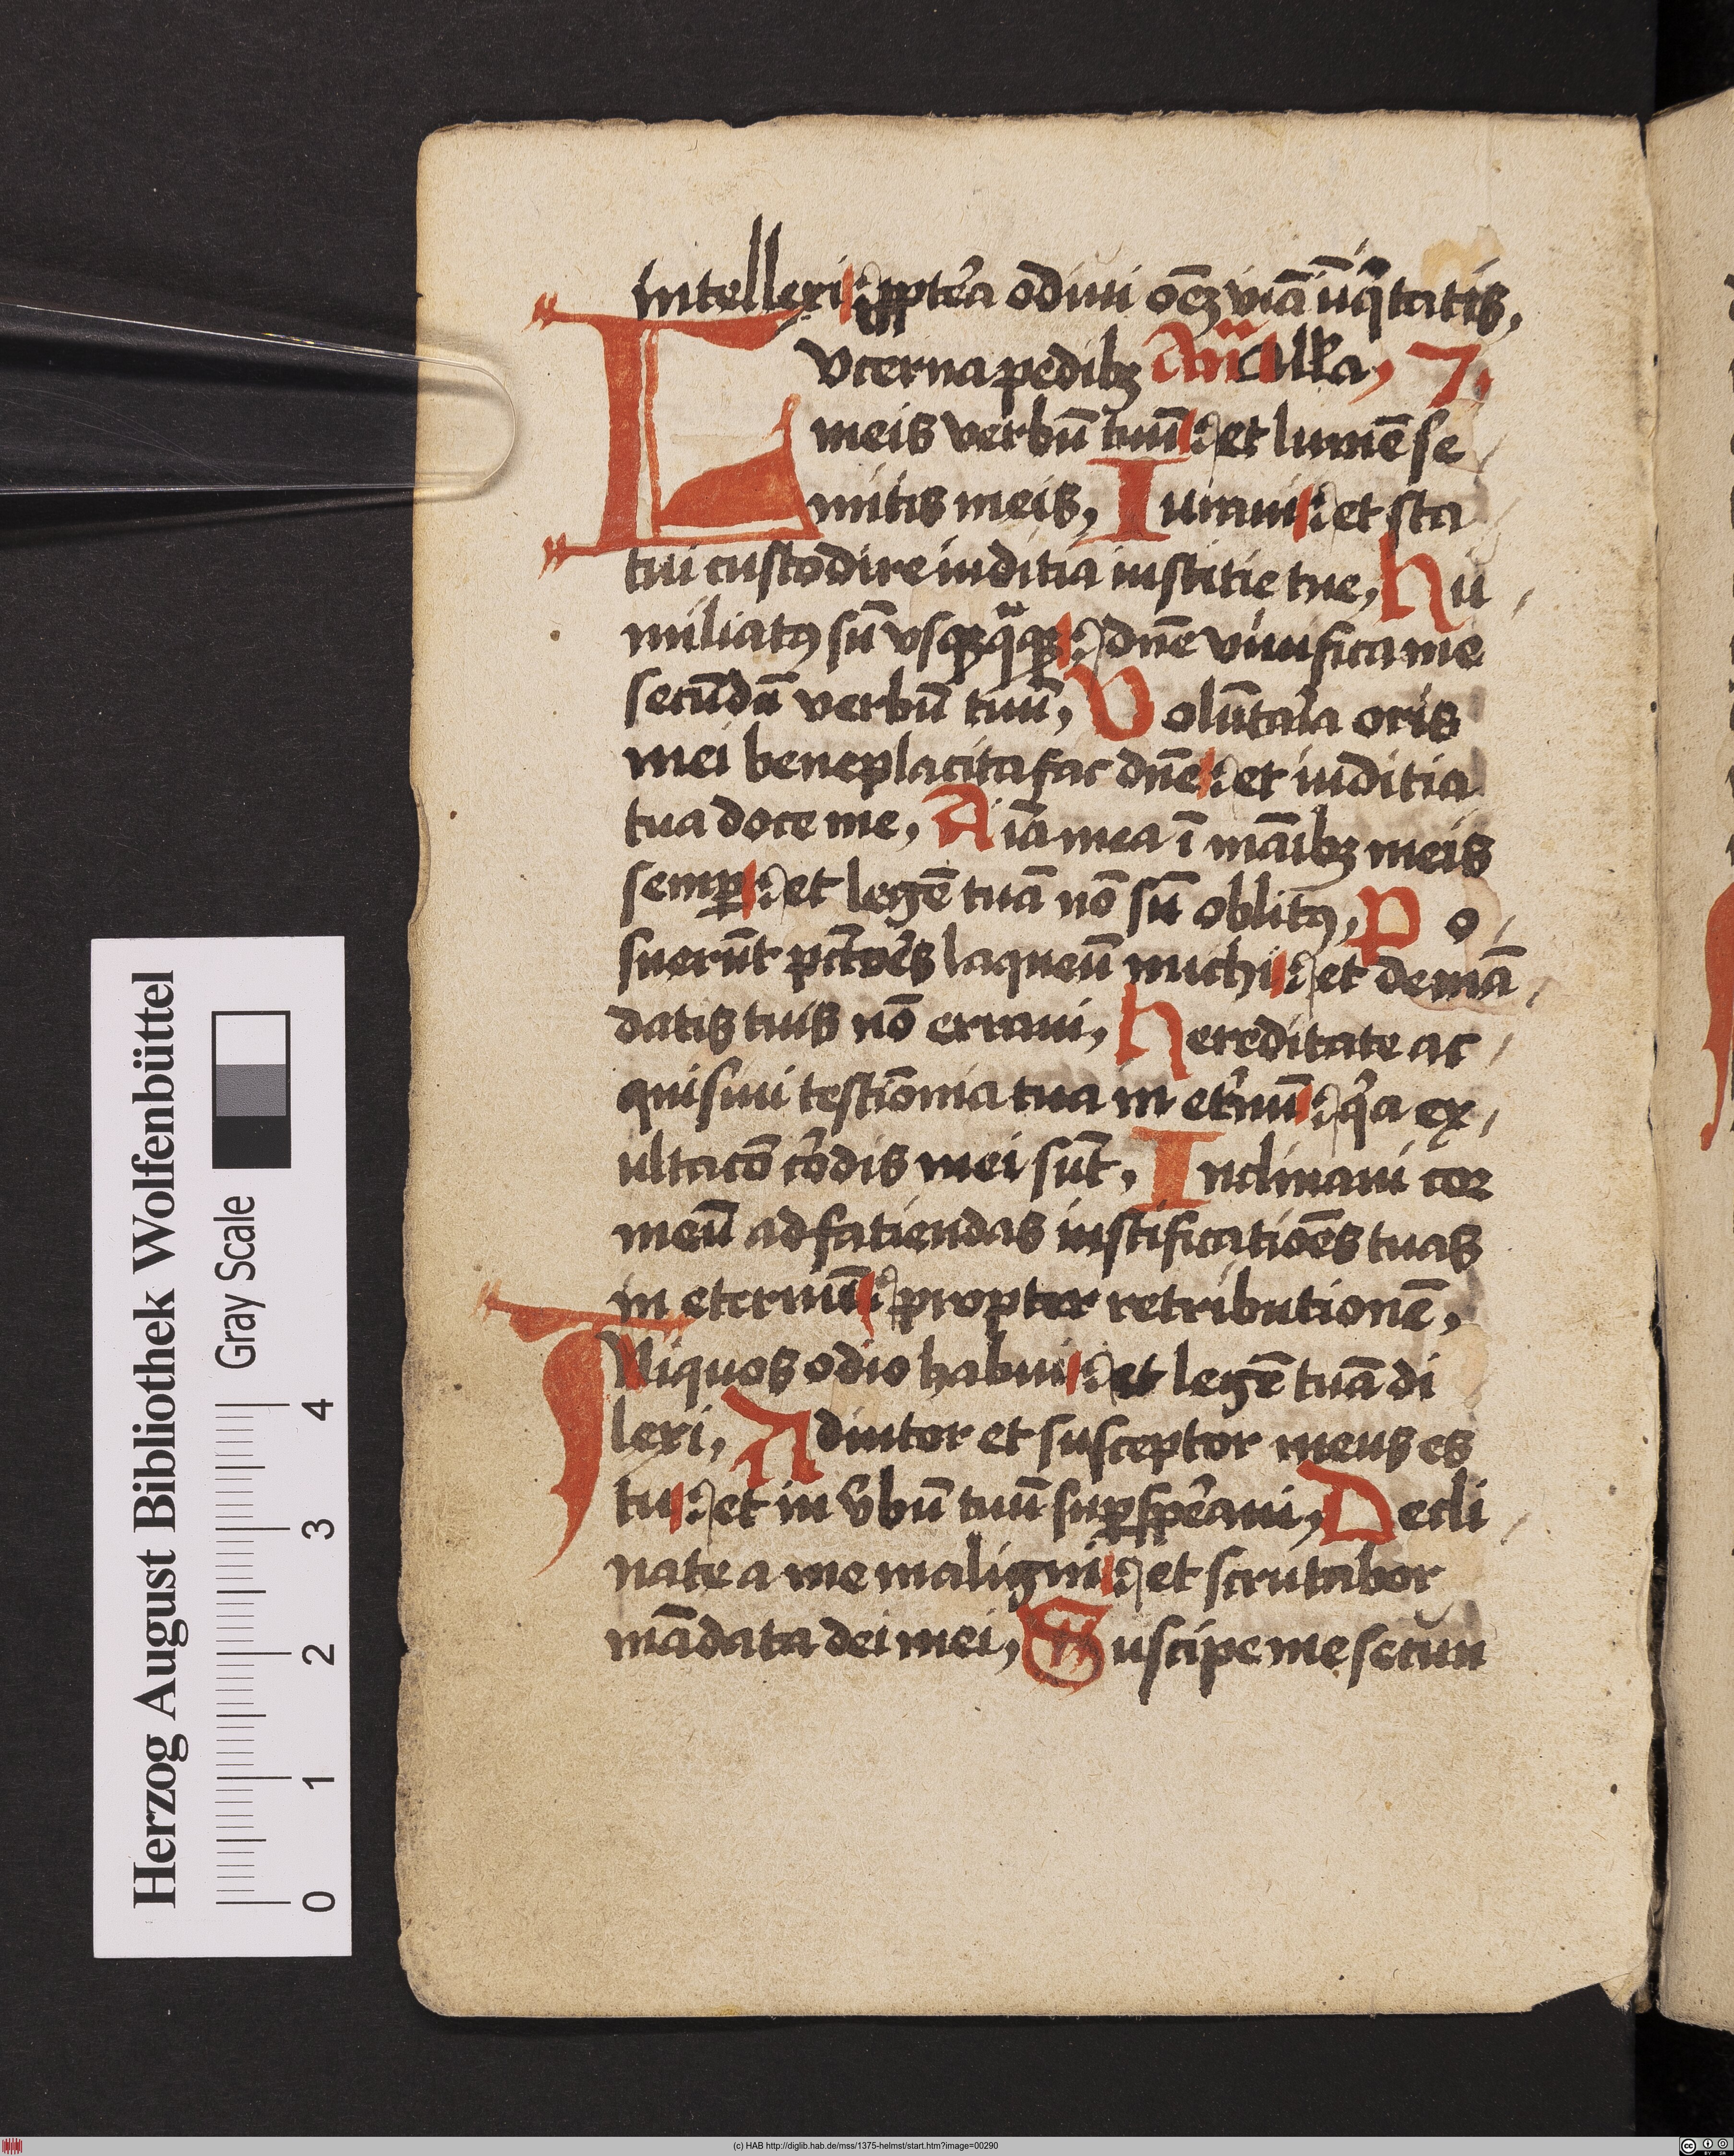 intellexi : ꝓpterea odiui oēꝫ viā iniqͣtatis,
Lucerna pedibꝫ Alla, 7.
meis verbū tuū : et lumē se
mitis meis, Iuraui : et sta
tui custodire iuditia iustitie tue, hu
miliatꝰ sū vsqꝫqͣqꝫ : dn̄e viuifica me
secūdū verbū tuū, Volūtaria oris
mei beneplacita fac dn̄e : et iuditia
tua doce me, Aīa mea ī māibꝫ meis
semꝑ : et legē tuā nō sū oblitꝰ, Po
suerūt pctōres laqueū michi : et de mā
datis tuis nō erraui, hereditate ac
quisiui testiōnia tua in etr̄nū : qia ex
ultacō cordis mei sūt, Inclinaui cor
meū ad fatiendas iustificatiōes tuas
in eternū : propter retributionē,
INiquos odio habui : et legē tuā di
lexi, Adiutor et susceptor meus es
tu : et in v̄bū tuū suꝑsperaui, Decli
nate a me maligni : et scrutabor
mādata dei mei, Suscipe me secun
Herzog August Bibliothek Wolfenbüttel
Gray Scale
0 1 2 3 4
(c) HAB http://diglib.hab.de/mss/1375-helmst/start.htm?image=00290